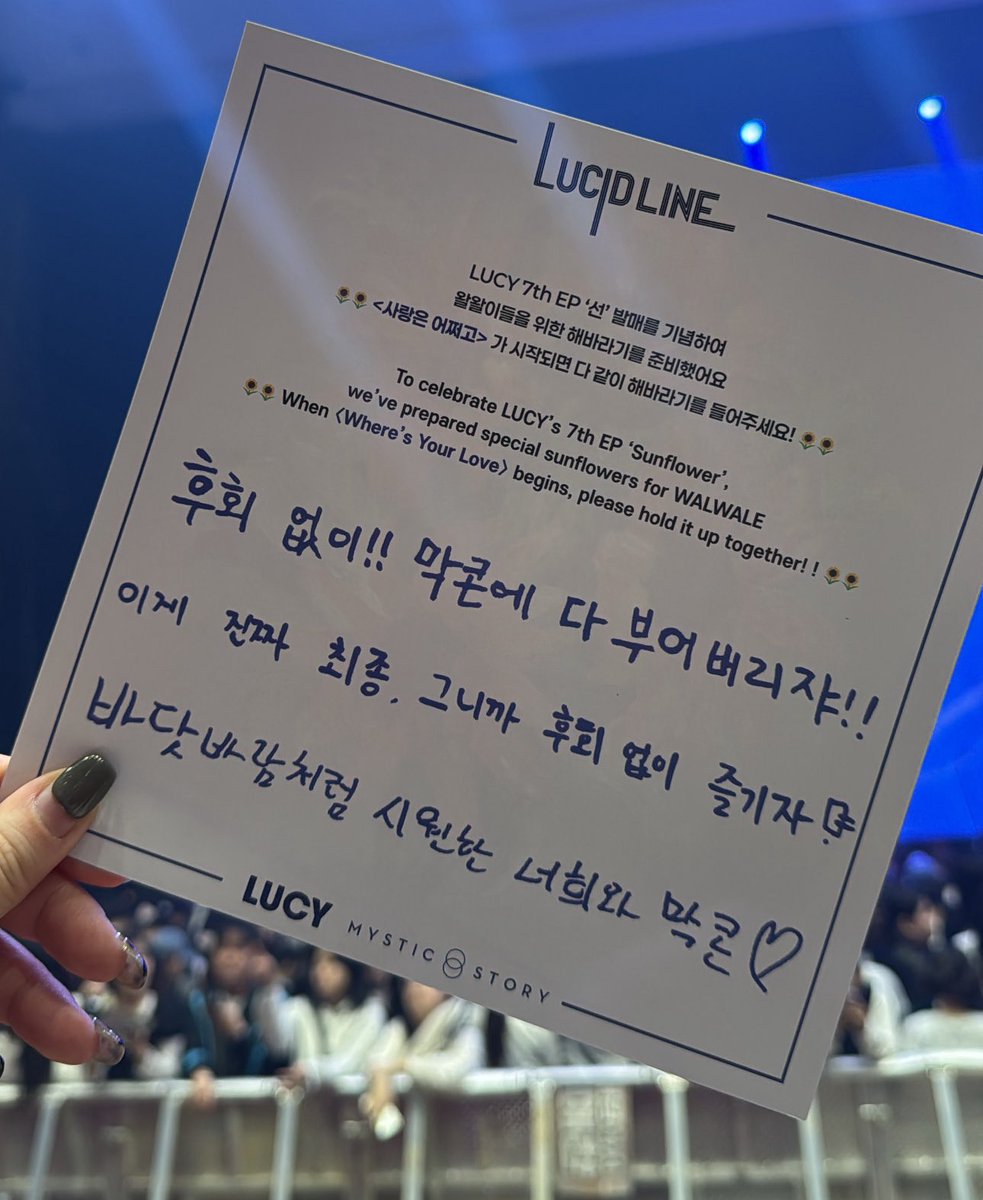 LUCID LINE
LUCY 7th EP ‘선’ 발매를 기념하여
왈왈이들을 위한 해바라기를 준비했어요
🌻🌻 <사랑은 어쩌고> 가 시작되면 다 같이 해바라기를 들어주세요! 🌻🌻
To celebrate LUCY’s 7th EP ‘Sunflower’,
we’ve prepared special sunflowers for WALWALE
🌻🌻 When 〈Where’s Your Love〉 begins, please hold it up together! ! 🌻🌻
후회 없이!! 막콘에 다 부어버리쟈!!
이게 진짜 최종. 그니까 후회 없이 즐기자
바닷바람처럼 시원한 너희와 막콘♡
LUCY MYSTIC STORY